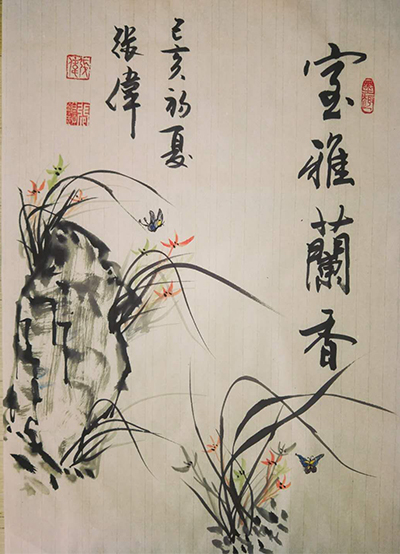 室雅蘭香
己亥初夏
張偉